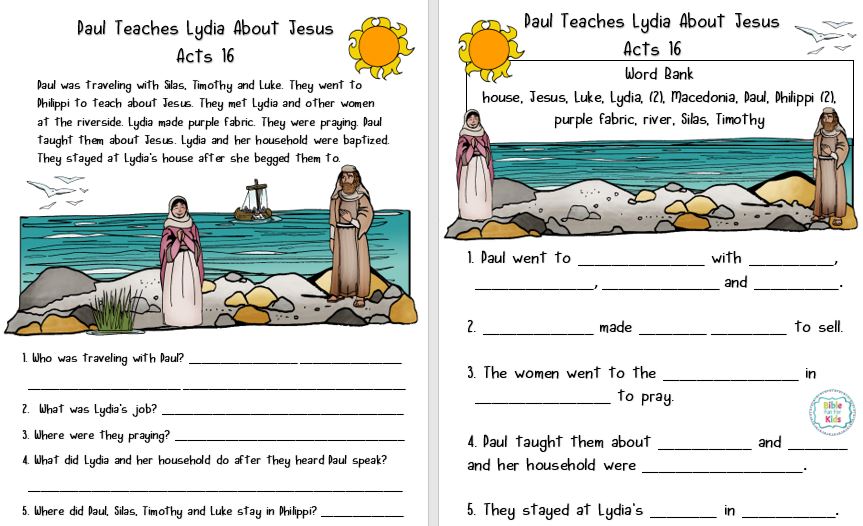 Paul Teaches Lydia About Jesus
Acts 16
Paul was traveling with Silas, Timothy and Luke. They went to
Philippi to teach about Jesus. They met Lydia and other women
at the riverside. Lydia made purple fabric. They were praying. Paul
taught them about Jesus. Lydia and her household were baptized.
They stayed at Lydia's house after she begged them to.
1. Who was traveling with Paul? ____________________ ____________________
____________________ ____________________
2. What was Lydia's job? ____________________
3. Where were they praying? ____________________
4. What did Lydia and her household do after they heard Paul speak?
____________________
5. Where did Paul, Silas, Timothy and Luke stay in Philippi? ____________
Paul Teaches Lydia About Jesus
Acts 16
Word Bank
house, Jesus, Luke, Lydia, (2), Macedonia, Paul, Philippi (2),
purple fabric, river, Silas, Timothy
1. Paul went to _______________ with __________,
______________, ______________ and __________.
2. _____________ made ________ _________ to sell.
3. The women went to the ________________ in
________________ to pray.
4. Paul taught them about ___________ and _______
and her household were ___________________.
5. They stayed at Lydia's ________ in ___________.
Bible
Fun For
Kids